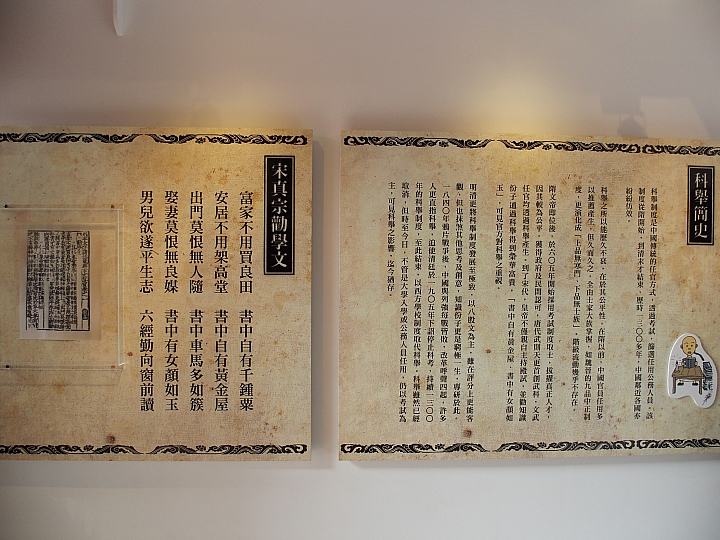 科舉簡史
科舉制度是中國傳統的任官方式，透過考試，篩選任用公務人員。該
制度從隋開始，到清末才結束，歷時一三〇〇多年，中國鄰近各國亦
紛紛仿效。
科舉之所以能歷久不衰，在於其公平性。在隋以前，中國官員任用多
以推薦產生，但久而久之，全由士家大族掌握，如魏晉的九品中正制
度，更演化成「上品無寒門，下品無士族」，階級流動幾乎不存在。
隋文帝即位後，於六〇五年開始採用考試制度取士，拔擢真正人才，
因其較為公平，獲得政府及民間認可，唐代武則天更首創武科，文武
任官均透過科舉產生。到了宋代，皇帝不僅親自主持殿試，並勸知識
份子通過科舉得到榮華富貴，「書中自有黃金屋，書中有女顏如
玉」，可見官方對科舉之重視。
明清更將科舉制度發展至極致，以八股文為主，雖在評分上更能客
觀，但也抹煞其他思考及創意，知識份子更是窮極一生，專研於此。
一八四〇年鴉片戰爭後，中國與列強每戰皆敗，改革呼聲四起，許多
人更直指科舉，迫使清廷於一九〇五年下詔停止科考，持續一三〇〇
年的科舉制度，至此結束，以西方學校制度取代科舉。科舉雖然已經
取消，但時至今日，不管是大學入學或公務人員任用，仍以考試為
主，可見科舉之影響，迄今猶存。
宋真宗勸學文
富家不用買良田　書中自有千鍾粟
安居不用架高堂　書中自有黃金屋
出門莫恨無人隨　書中車馬多如簇
娶妻莫恨無良媒　書中有女顏如玉
男兒欲遂平生志　六經勤向窗前讀